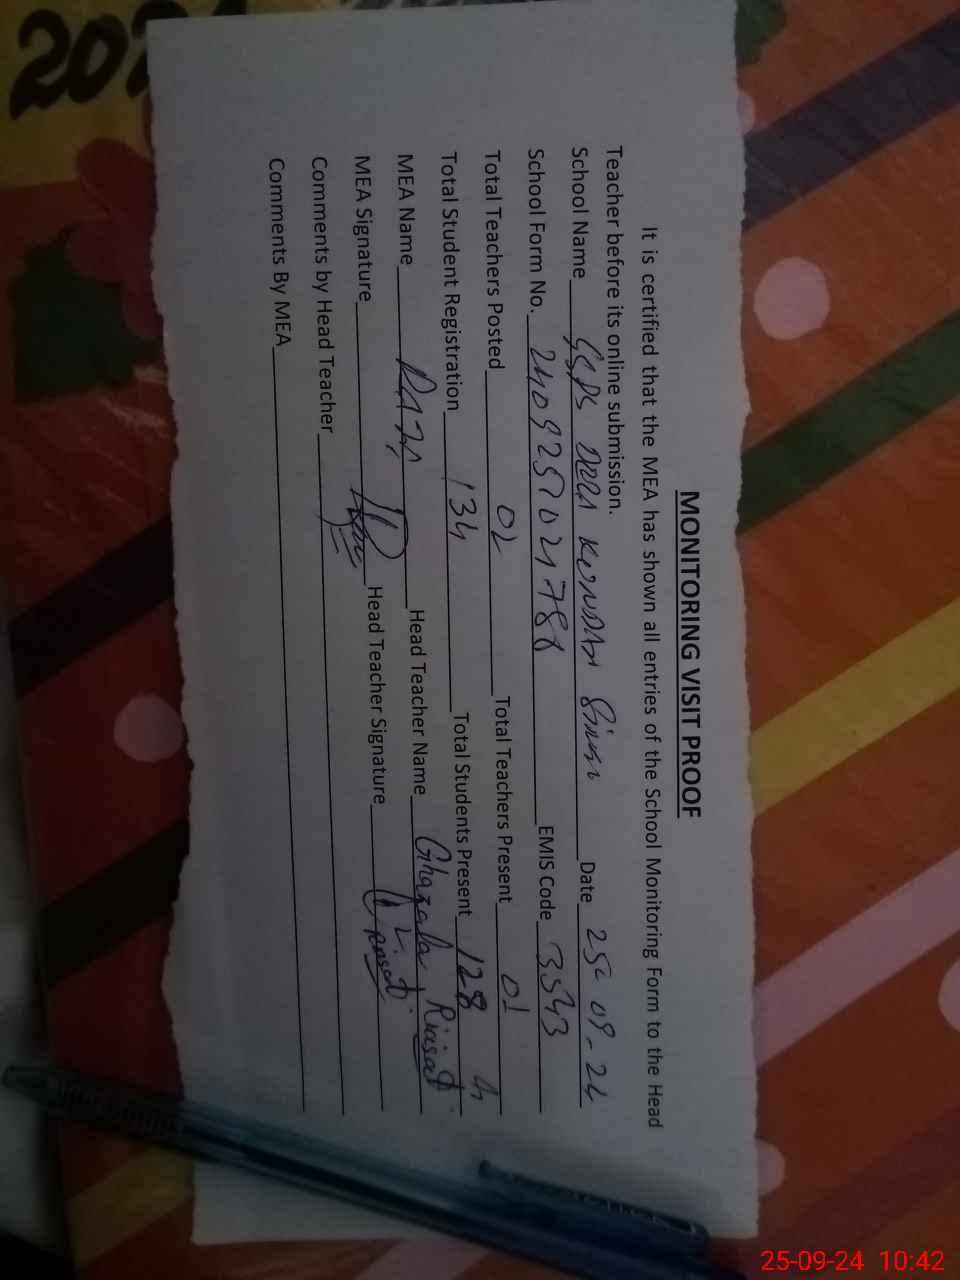 MONITORING VISIT PROOF
It is certified that the MEA has shown all entries of the School Monitoring Form to the Head
Teacher before its online submission.
School Name GGPS Date 25-09-24
School Form No. EMIS Code 3543
Total Teachers Posted 02 Total Teachers Present 01
Total Student Registration 134 Total Students Present 128
MEA Name Head Teacher Name Ghazala Riasat
MEA Signature Head Teacher Signature
Comments by Head Teacher
Comments By MEA
25-09-24 10:42